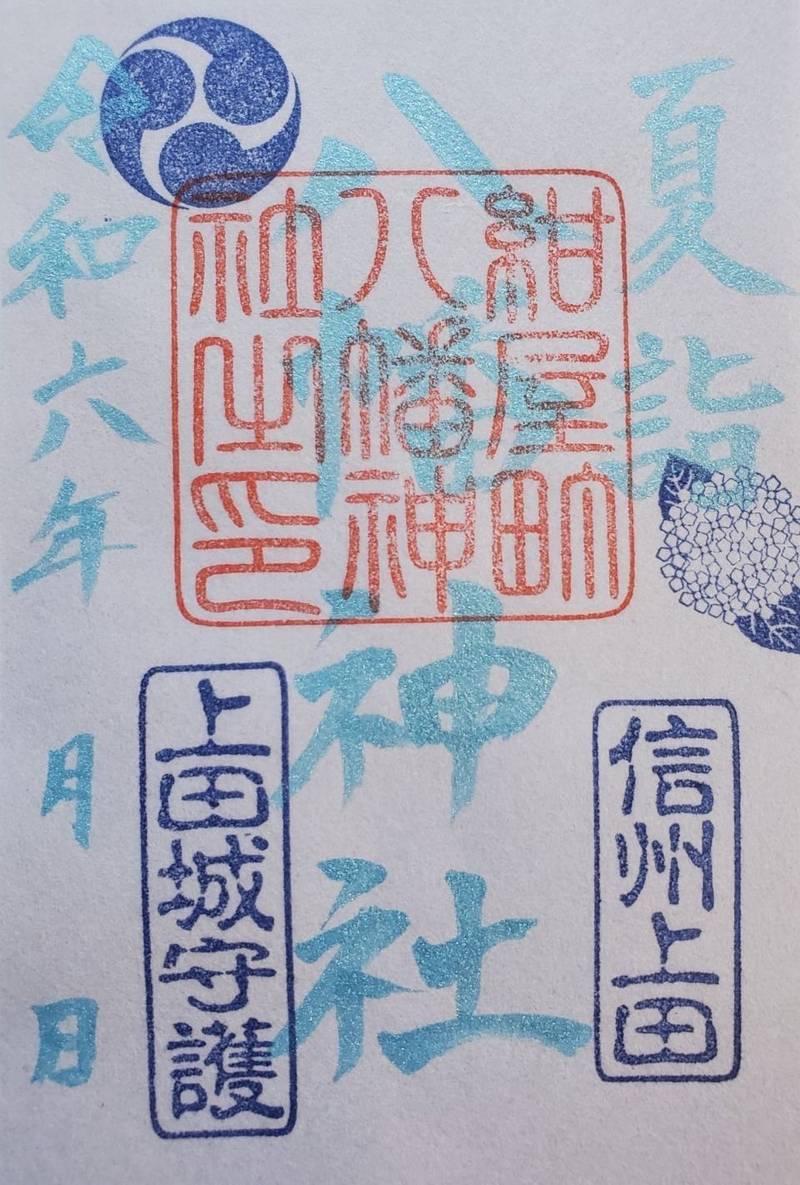 夏詣
信州上田
八幡神社
紺屋町
八幡神
社之印
令和六年 月 日
上田城守護